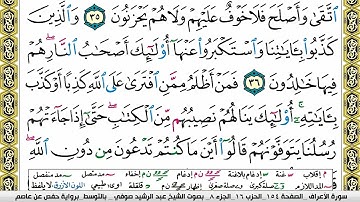 ٱتَّقَىٰ وَأَصْلَحَ فَلَا خَوْفٌ عَلَيْهِمْ وَلَا هُمْ يَحْزَنُونَ ٣٥ وَٱلَّذِينَ
كَذَّبُوا۟ بِـَٔايَـٰتِنَا وَٱسْتَكْبَرُوا۟ عَنْهَآ أُو۟لَـٰٓئِكَ أَصْحَـٰبُ ٱلنَّارِ ۖ هُمْ
فِيهَا خَـٰلِدُونَ ٣٦ فَمَنْ أَظْلَمُ مِمَّنِ ٱفْتَرَىٰ عَلَى ٱللَّهِ كَذِبًا أَوْ كَذَّبَ
بِـَٔايَـٰتِهِۦٓ ۚ أُو۟لَـٰٓئِكَ يَنَالُهُمْ نَصِيبُهُم مِّنَ ٱلْكِتَـٰبِ ۖ حَتَّىٰٓ إِذَا جَآءَتْهُمْ
رُسُلُنَا يَتَوَفَّوْنَهُمْ قَالُوٓا۟ أَيْنَ مَا كُنتُمْ تَدْعُونَ مِن دُونِ ٱللَّهِ ۖ
سورة الأعراف . الصفحة ١٥٤ . الجزء ٨ . بصوت الشيخ عبد الرشيد صوفي - بالتوسط . برواية حفص عن عاصم